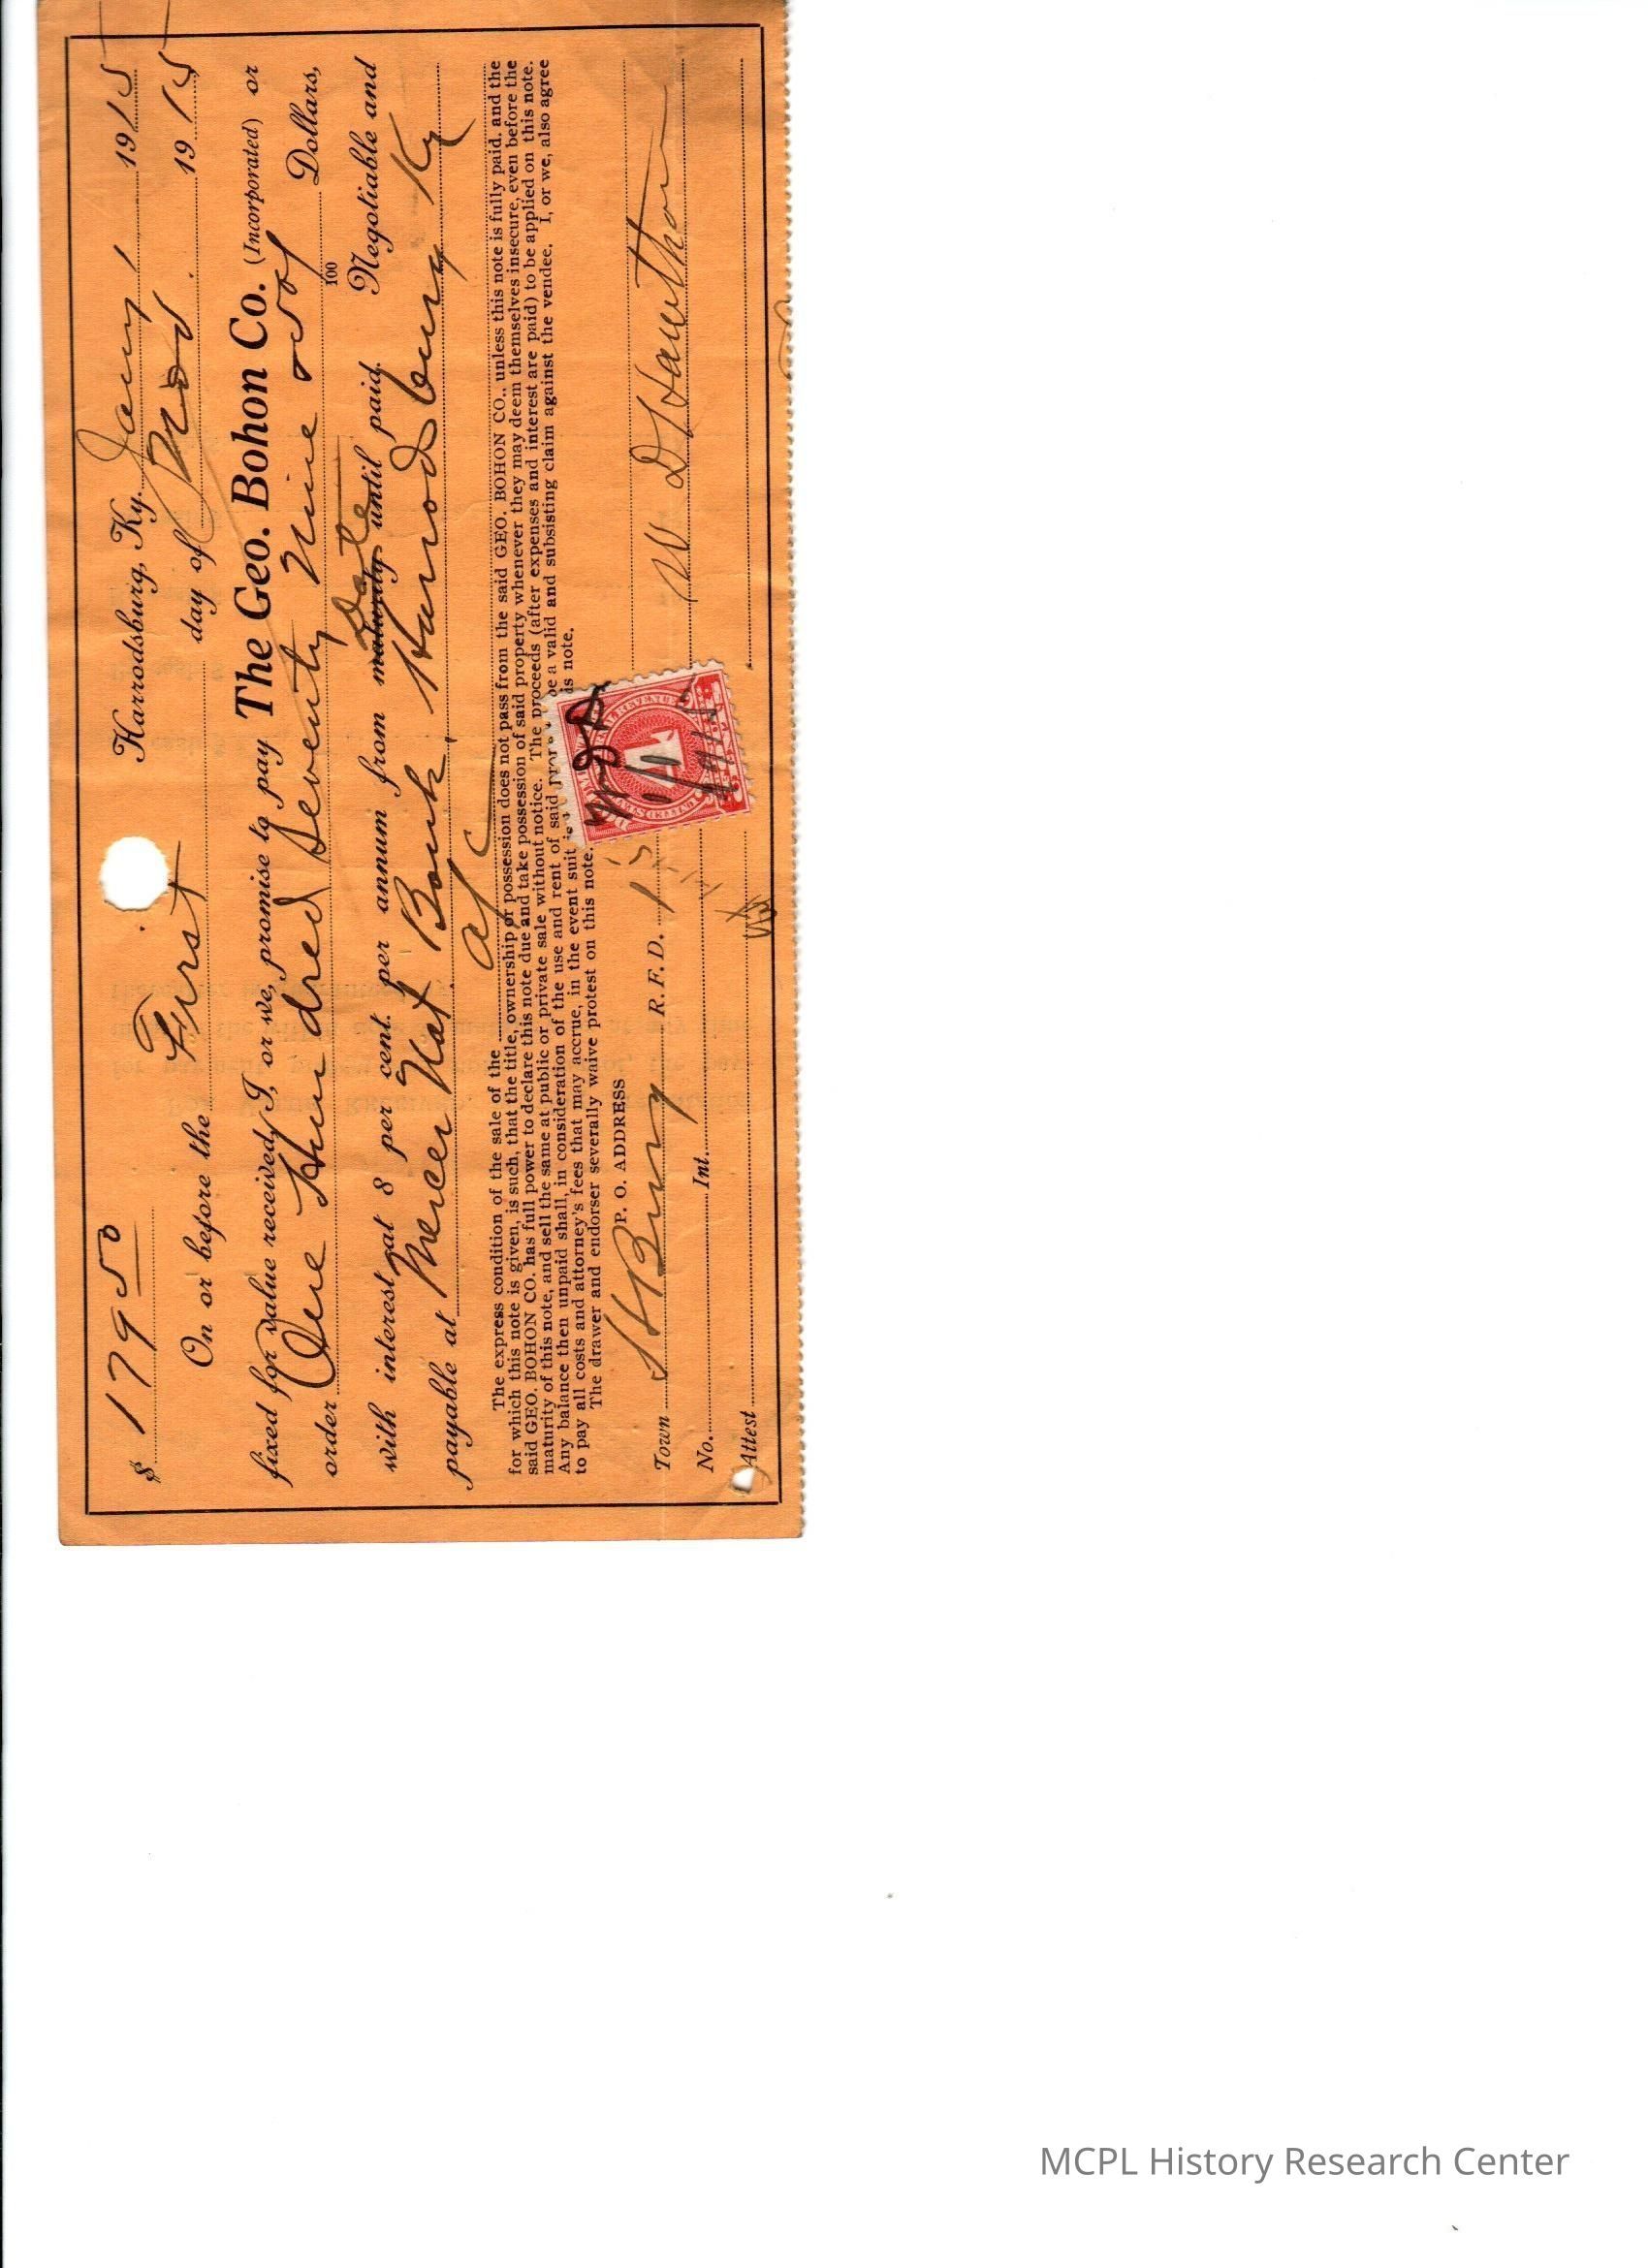 $ 179 50 Harrodsburg, Ky. Jany 1 1915
On or before the First day of Nov. 1915
fixed for value received, I, or we, promise to pay The Geo. Bohon Co. (Incorporated) or
order One Hundred Seventy Nine & 50/100 Dollars,
with interest at 8 per cent. per annum from maturity date until paid. Negotiable and
payable at Mercer Nat Bank. Harrodsburg Ky
The express condition of the sale of the
for which this note is given, is such, that the title, ownership or possession does not pass from the said GEO. BOHON CO., unless this note is fully paid, and the
said GEO. BOHON CO. has full power to declare this note due and take possession of said property whenever they may deem themselves insecure, even before the
maturity of this note, and sell the same at public or private sale without notice. The proceeds (after expenses and interest are paid) to be applied on this note.
Any balance then unpaid shall, in consideration of the use and rent of said be a valid and subsisting claim against the vendee. I, or we, also agree
to pay all costs and attorney's fees that may accrue, in the event suit is note.
The drawer and endorser severally waive protest on this note.
P. O. ADDRESS
Town HBurg R. F. D. 1
W D Hawthorn
No. Int.
Attest
1
MCPL History Research Center